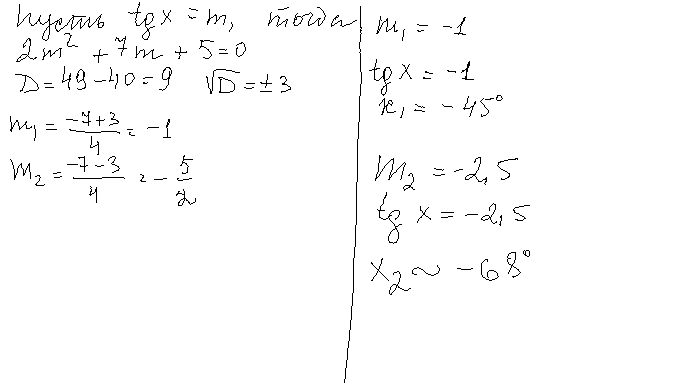 Пусть tg x = m, тогда
2m² + 7m + 5 = 0
D = 49 - 40 = 9 √D = ±3
m₁ = (-7+3)/4 = -1
m₂ = (-7-3)/4 = -5/2
m₁ = -1
tg x = -1
x₁ = -45°
m₂ = -2,5
tg x = -2,5
x₂ ~ -68°